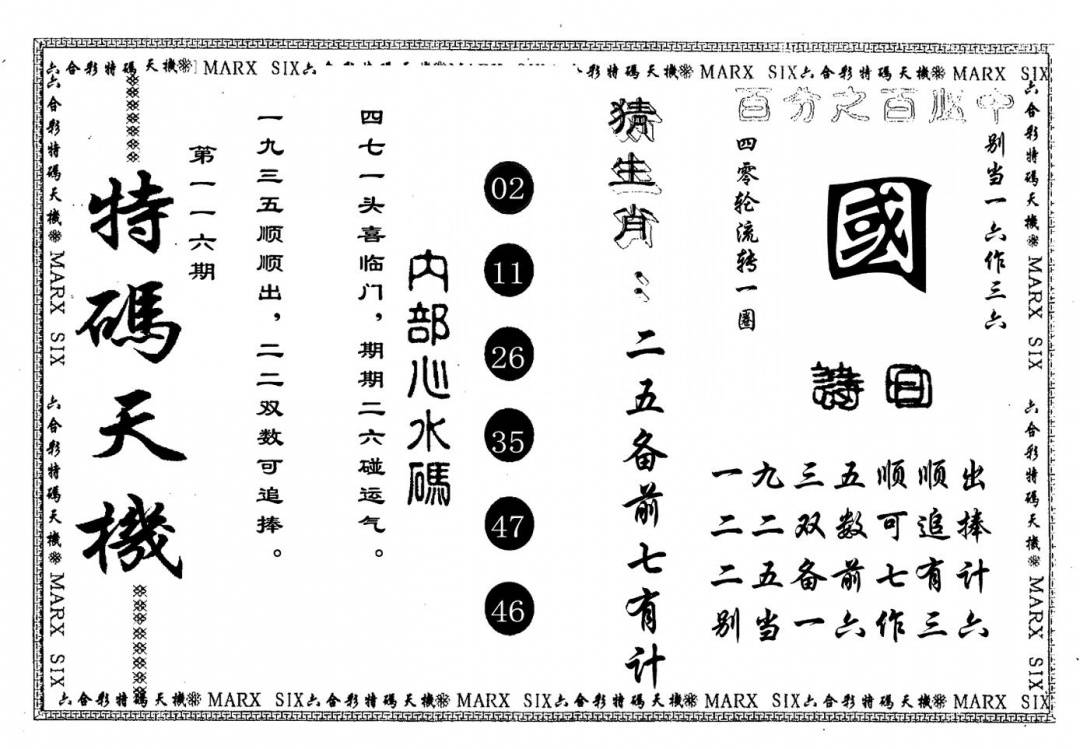 六合彩特碼天機 MARX SIX六
彩特碼天機 MARX SIX六合彩特碼天機 MARX SIX
六合彩特碼天機 MARX SIX 六合彩特碼天機 MARX SIX
特碼天機
第一一六期
一九三五顺顺出，二二双数可追捧。
四七一头喜临门，期期二六碰运气。
内部心水碼
02
11
26
35
47
46
猜生肖：二五备前七有计
百分之百必中
四零轮流转一圈
國
别当一六作三六
詩曰
一九三五顺顺出
二二双数可追捧
二五备前七有计
别当一六作三六
六合彩特碼天機 MARX SIX 六合彩特碼天機 MARX SIX
六合彩特碼天機 MARX SIX六合彩特碼天機 MARX SIX六合彩特碼天機 MARX SIX六合彩特碼天機 MARX SIX